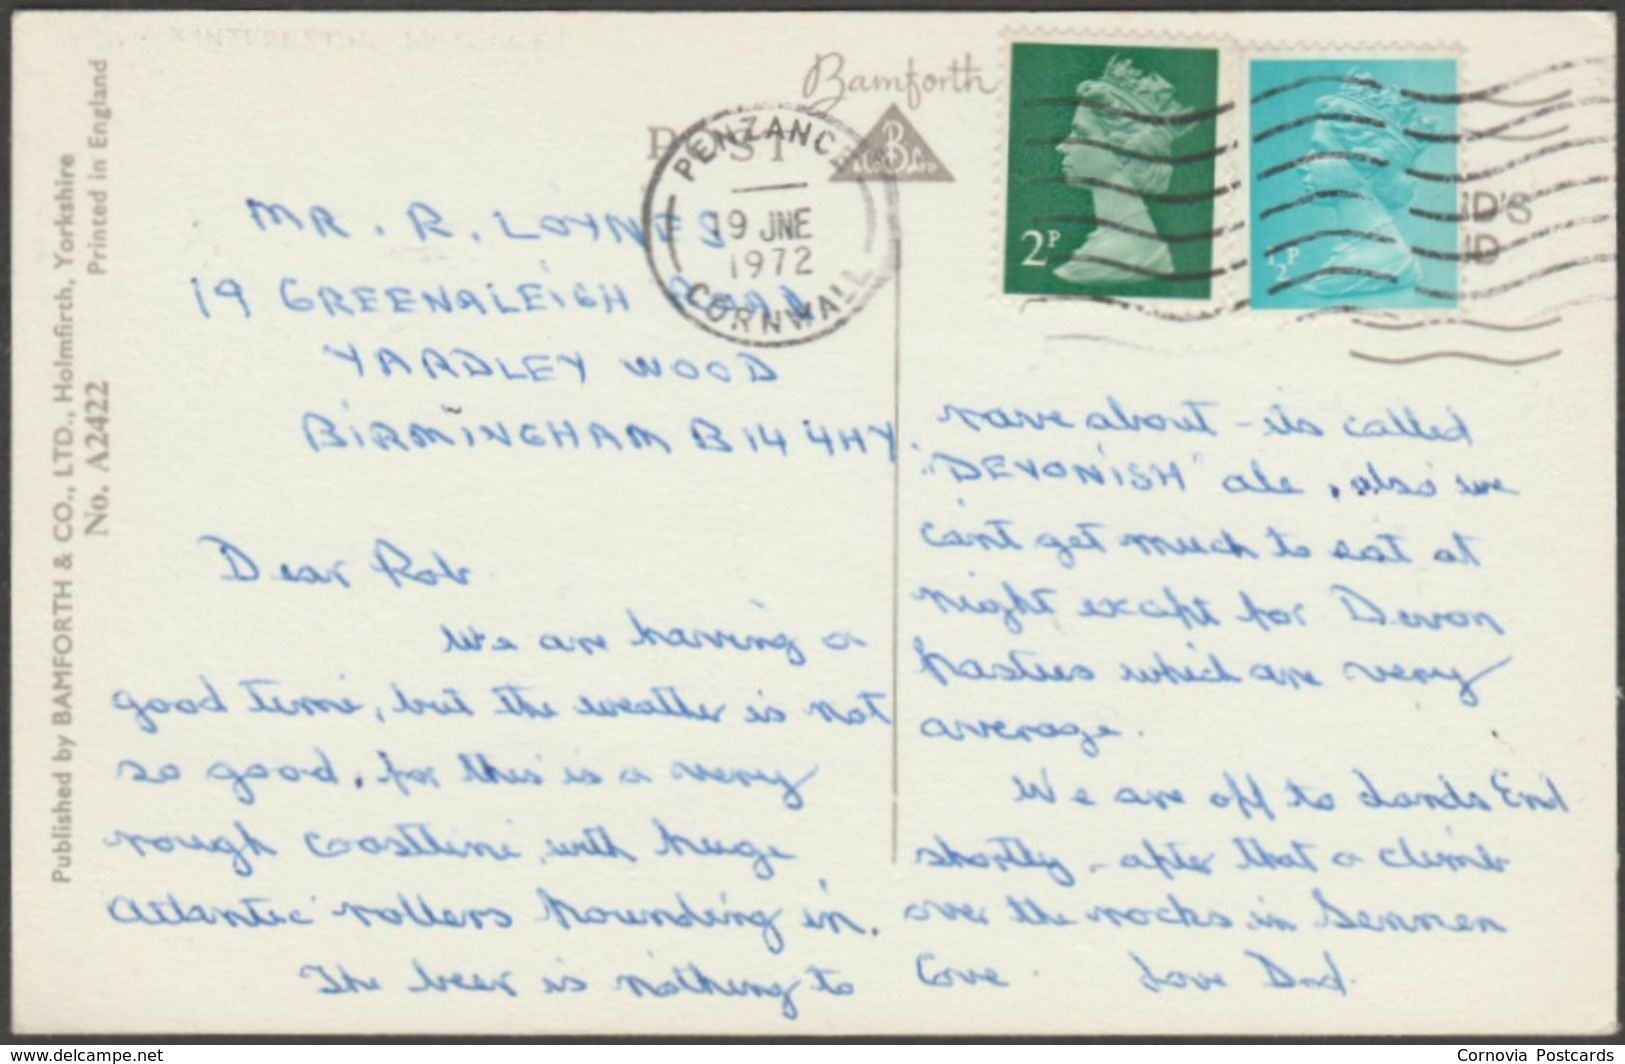 Bamforth
POST
B
& Co. Ltd.
PENZANCE
19 JNE
1972
CORNWALL
2P
½P
ND'S
ND
Published by BAMFORTH & CO., LTD., Holmfirth, Yorkshire
No. A2422
Printed in England
MR. R. LOYNES
19 GREENALEIGH ROAD
YARDLEY WOOD
BIRMINGHAM B14 4HY.
Dear Rob
We are having a
good time, but the weather is not
so good, for this is a very
rough coastline, with huge
Atlantic rollers pounding in.
The beer is nothing to
rave about - its called
"DEVONISH" ale, also we
cant get much to eat at
night except for Devon
Pasties which are very
average.
We are off to Lands End
shortly - after that a climb
over the rocks in Sennen
Cove. Love Dad.
www.delcampe.net
Cornovia Postcards